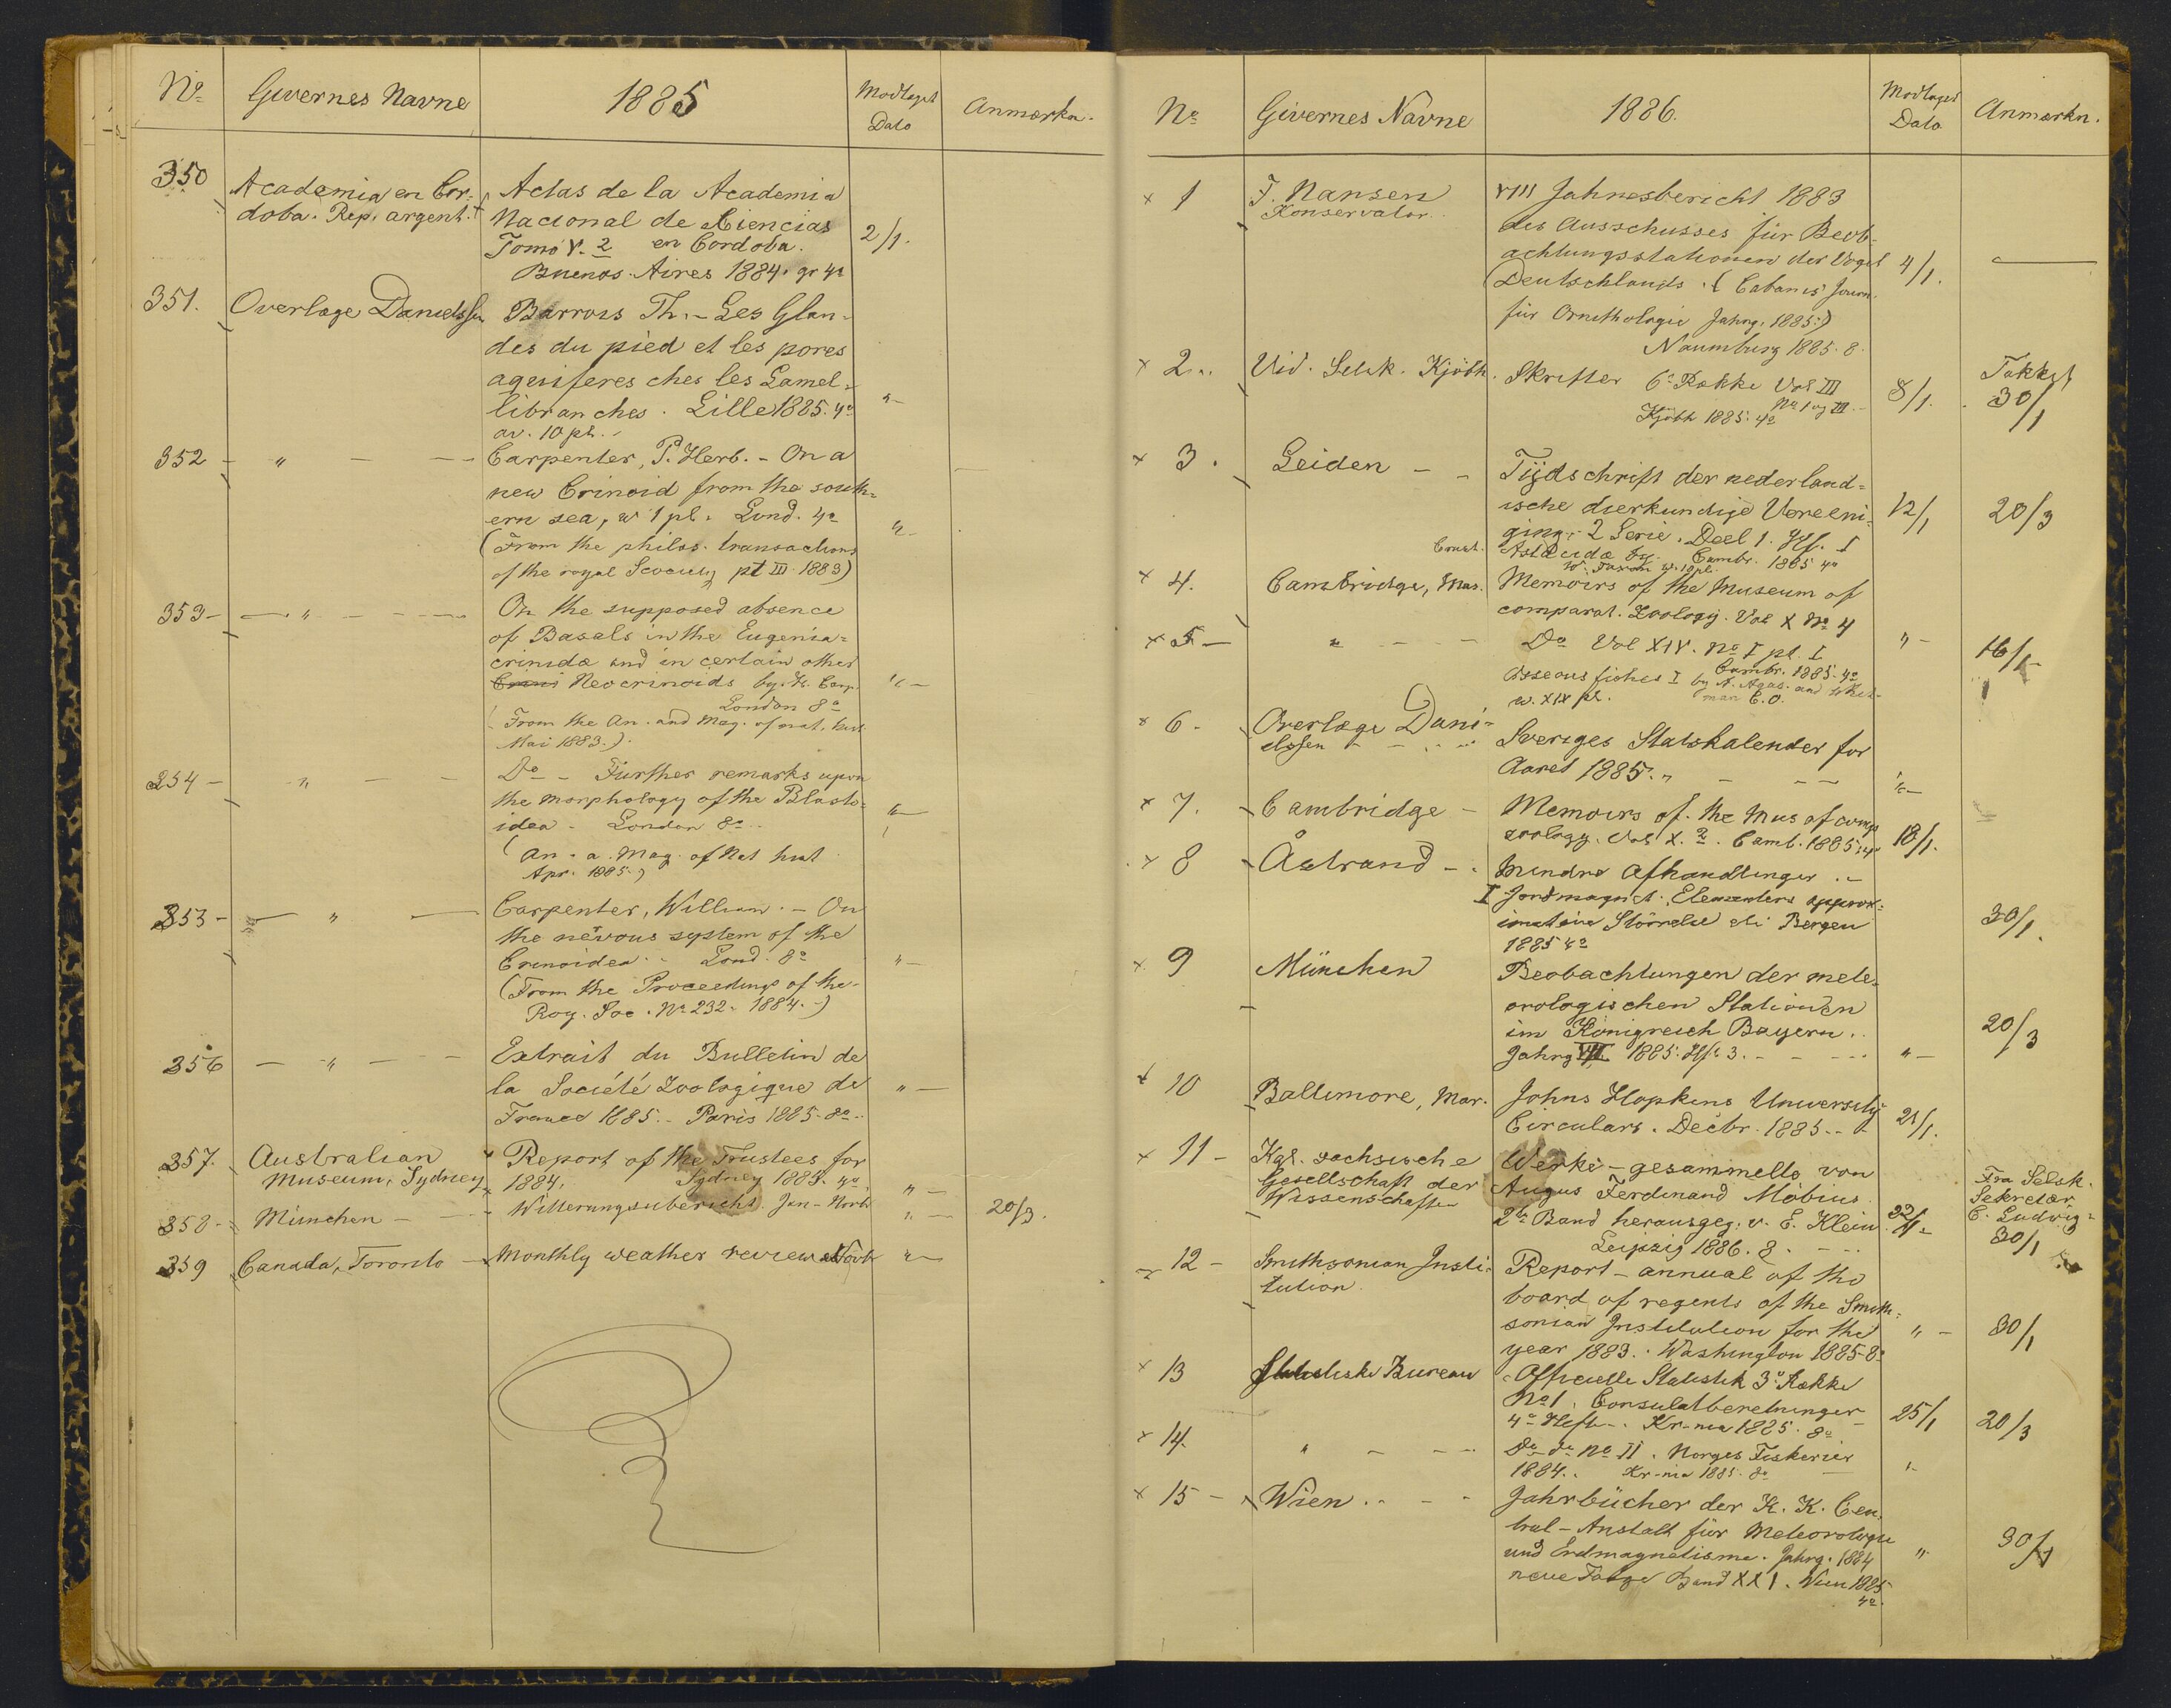 No Givernes Navne 1885 Modtaget Dato Anmærkn.
350 Academia en Cor- Actas de la Academia
doba. Rep. argent. Nacional de Ciencias
Tomo V. 2 en Cordoba. 2/1.
Buenos-Aires 1884. gr 4o
351. Overlæge Danielssen Barrois Th. - Les Glan-
des du pied et les pores
aquiferes ches les Lamel-
libranches. Lille 1885. 4o "-
av. 10 pl. -
352 - " - - Carpenter, P. Herb. - On a
new Crinoid from the south=
ern sea, w 1 pl. Lond. 4o "-
(From the philos. transactions
of the royal Society pt III. 1883)
353 - - " - - - On the supposed absence
of Basals in the Eugenia=
crinidæ and in certain other
Neocrinoids by H. Carp. "-
London 8o
(From the An. and Mag. of nat. hist.
Mai 1883.)
354 - - " - - Do - Further remarks upon
the morphology of the Blasto=
idea - London 8o - "-
(An. a. Mag. of Nat hist
Apr. 1885.)
353 - - " - Carpenter, William. - On
the nervous system of the
Crinoidea. - Lond. 8o "-
(From the Proceedings of the
Roy. Soc. No 232. 1884. -)
356 - " - - Extrait du Bulletin de
la Société Zoologique de "-
France 1885. - Paris 1885. 8o -
357. Australian Report of the Trustees for
Museum, Sydney 1884. Sydney 1885. 4o "-
358 - München - - Witterungsubericht. Jan - Novb "- 20/3.
359 Canada, Toronto - Monthly weather review Novb "-
No Givernes Navne 1886. Modtaget Dato Anmærkn.
x 1 F. Nansen VIII Jahresbericht 1883
Konservator. des Ausschusses für Beob-
achtungsstationen der Vögel 4/1. -
Deutschlands. (Cabanis Journ.
für Ornithologie Jahrg. 1885.)
Naumburg 1885. 8.
x 2. Vid. Selsk. Kjöbh. Skrifter 6o Række Vol III 8/1. Takket 30/1
No 1 og III. -
Kjöbh 1885. 4o
x 3. Leiden - - Tijdschrift der nederland=
ische dierkundige Vereeni= 12/1 20/3
ging. 2 Serie. Deel 1. Hft. I
Cambr. 1885 4o
w. 10 pl.
x 4. Cambridge, Mas. Memoirs of the Museum of
comparat. Zoology. Vol X No 4
x 5 - " - - Do Vol XIV. No I pt. I "- 16/1
Cambr. 1885. 4o
Osseous fishes I by A. Agas. and Whit-
w. XIX pl. man C.O.
x 6 - Overlæge Dani-
elssen - - Sveriges Statskalender for
Aaret 1885. - - - "-
x 7. Cambridge - Memoirs of the Mus of comp
zoology. Vol X. 2. Camb. 1885. 4o 18/1.
x 8 Åstrand - - Mindre Afhandlinger. -
I Jordmagnet. Elementers approx=
imative Störrelse i Bergen 30/1.
1885 4o
x 9 München Beobachtungen der mete-
orologischen Stationen
im Königreich Bayern. 20/3
Jahrg VII 1885. Hft 3. - - - "-
x 10 Baltimore, Mar. Johns Hopkins University
Circulars. Decbr. 1885. - - 21/1.
x 11 - Kgl. sachsische Werke - gesammelte von
Gesellschaft der Augus Ferdinand Möbius. Fra Selsk.
Wissenschaften 2te Band herausgeg. v. E. Klein. 22/1- Sekretær
Leipzig 1886. 8. - - C. Ludwig- 30/1
x 12 - Smithsonian Insti- Report - annual of the
tution. board of regents of the Smith-
sonian Institution for the "- 30/1
year 1883. Washington 1885. 8o
x 13 Statistiske Bureau Officielle Statistik 3o Række
No 1. Consulatberetninger 25/1 20/3
4o Hefte. Kr-nia 1885. 8o
x 14. " - - - Do do No II. Norges Fiskerier
1884. Kr-nia 1885. 8o "-
x 15 - Wien. - - - Jahrbücher der K. K. Cen-
tral-Anstalt für Meteorologie
und Erdmagnetisme. Jahrg. 1884 " 30/1
neue Folge Band XXI. Wien 1885
4o.